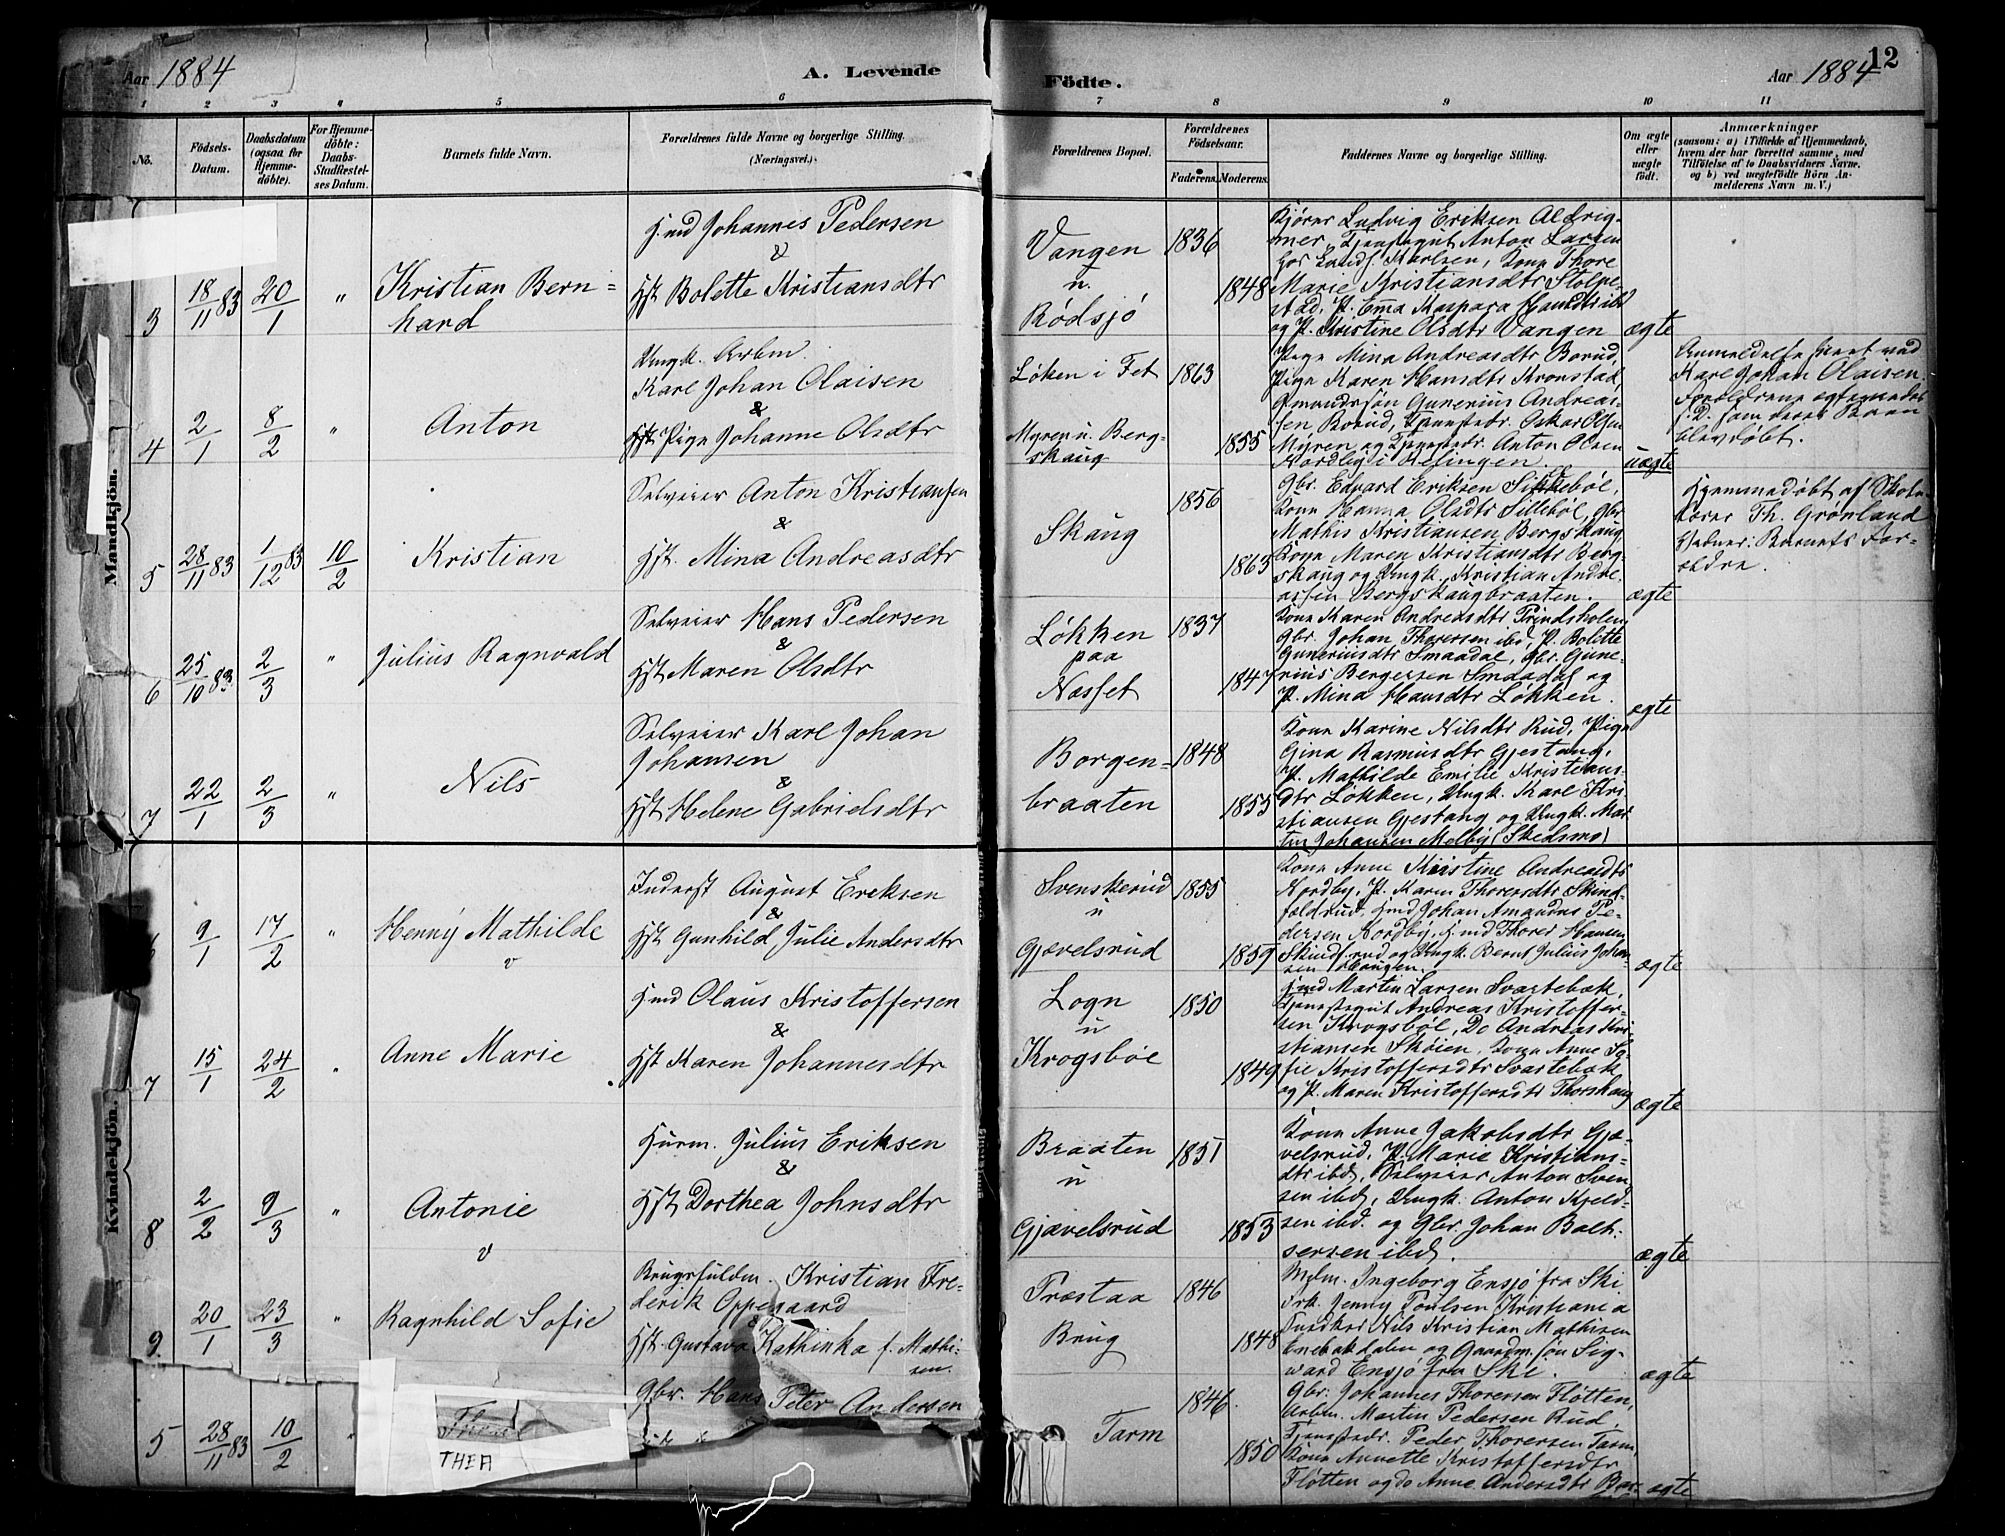 Aar 1884
A. Levende
Födte.
Aar 1884
12
1 2 3 4 5 6 7 8 9 10 11
No.
Födsels-
Datum.
Daabsdatum
(ogsaa for
Hjemme-
döbte).
For Hjemme-
döbte:
Daabs-
Stadfæstel-
ses Datum.
Barnets fulde Navn.
Forældrenes fulde Navne og borgerlige Stilling.
(Næringsvei.)
Forældrenes Bopæl.
Forældrenes
Födselsaar.
Faderens.
Moderens.
Faddernes Navne og borgerlige Stilling.
Om ægte
eller
uægte
födt.
Anmærkninger
(saasom: a) i Tilfælde af Hjemmedaab,
hvem der har forrettet samme, med
Tilföielse af to Daabsvidners Navne.
og b) ved uægtefödte Börn An-
melderens Navn m. V.)
Mandkjön.
3
18/11 83
20/1
"
Kristian Bern-
hard
Hmd Johannes Pedersen
&
Hst. Bolette Kristiansdtr
Vangen
u.
Rødsjø
1836
1848
Kjører Ludvig Eriksen Aldrig-
mer, Tjenstegut Anton Larsen
hos Karlsen, Kone Thore
Marie Kristiansdtr Stolpe-
stad, P. Emma Kaspara
og P. Kristine Olsdtr Vangen
ægte
4
2/1
8/2
"
Anton
Ungk. Arbm.
Karl Johan Olaisen
&
Pige Johanne Olsdtr
Løken i Fet
Myren u. Berg-
skaug
1863
1855
Pige Mina Andreasdtr Borud,
Pige Karen Hansdtr Kronstad
Gmandssøn Gunerius Andreas-
sen Borud, Tjenestedr. Oskar Olsen
Myren og Tjenstedr. Anton Olsen
Nordlig i Kefingen.
uægte
Anmeldelse skeet ved
Karl Johan Olaisen.
Forældrene egteviedes
s. D. som deres Barn
blev døbt.
5
28/11 83
1/12 83
10/2
Kristian
Selveier Anton Kristiansen
&
Hst. Mina Andreasdtr
Skaug
1856
1863
Gbr. Edvard Eriksen Sillebøl,
Kone Hanna Olsdtr Sillebøl, Gbr
Mathis Kristiansen Bergskaug
Kone Maren Kristiansdtr Berg-
skaug og Ungk. Kristian Andre-
assen Bergskaugbraaten.
ægte
Hjemmedøbt af Skole-
lærer Th. Grønland
Vidner: Barnets For-
ældre.
6
25/10 83
2/3
"
Julius Ragnvald
Selveier Hans Pedersen
&
Hst. Maren Olsdtr
Løkken
paa
Næsset
1837
1847
Kone Karen Andreasdtr Prindsholm
Gbr. Johan Thoresen ibd, P. Bolitte
Guneriusdtr Smaadal, Gbr. Gune-
rius Bergersen Smaadal og
P. Mina Hansdtr Løkken.
ægte
7
22/1
2/3
"
Nils
Selveier Karl Johan
Johansen
&
Hst Helene Gabrielsdtr
Borgen-
braaten
1848
1855
Kone Karine Nilsdtr Rud, Pige
Gina Rasmusdtr Gjestang,
P. Mathilde Emilie Kristians-
dtr Løkken, Ungk. Karl Kri-
stiansen Gjestang og Ungk. Mar-
tin Johansen Melby (Skedsmo)
Kvindekjön.
9/1
17/2
"
Henny Mathilde
Inderst August Eriksen
&
Hst Gunhild Julie Andersdtr
Svenskerud
u
Gjævelsrud
1855
1859
Kone Anne Kristine Andreasdtr
Nordby, P. Karen Thoresdtr Skind-
fældrud, Hmd Johan Amandus Pe-
dersen Nordby, Hmd Thorer Hansen
Skindf.rud og Ungk. Bernt Julius Johan-
sen Haugen.
ægte
7
15/1
24/2
Anne Marie
Hmd Olaus Kristoffersen
&
Hst Karen Johannesdtr
Logn
u
Krogsbøl
1850
1849
Hmd Martin Larsen Svartebæk,
Tjenstegut Andreas Kristoffer-
sen Krogsbøl, Do Andreas Kri-
stiansen Skøien, Kone Anne So-
fie Kristoffersdtr Svartebæk
og P. Maren Kristoffersdtr Thorshaug
ægte
8
2/2
9/3
"
Antonie
Husm. Julius Eriksen
&
Hst Dorthea Johnsdtr
Braaten
u
Gjævelsrud
1851
1853
Kone Anne Jakobsdtr Gjæ-
velsrud, P. Marie Kristians-
dtr ibd, Selveier Anton Sven-
sen ibd, Ungk. Anton Kjeld-
sen ibd. og Gbr. Johan Balth-
sersen ibd.
ægte
9
20/1
23/3
"
Ragnhild Sofie
Brugsfuldm. Kristian Fre-
derik Oppegaard
&
Hst. Gustava Kathinka f. Mathi-
sen.
Træstaa
Brug
1846
1848
Mdm. Ingeborg Ensjø fra Ski
Frk. Jenny Poulsen Kristiania
Snedker Nils Kristian Mathisen
Enebakdalen og Gaardm.søn Sig-
ward Ensjø fra Ski.
ægte
5
28/11 83
10/2
"
Thea
THEA
Gbr. Hans Peter Andersen
Tarm
1846
1850
Gbr. Johannes Thoresen Fløtten,
Arbm. Martin Pedersen Rud,
Tjenstedr. Peder Thorersen Tarm
Kone Annette Kristoffersdtr
Fløtten og do Anne Andersdtr
ægte